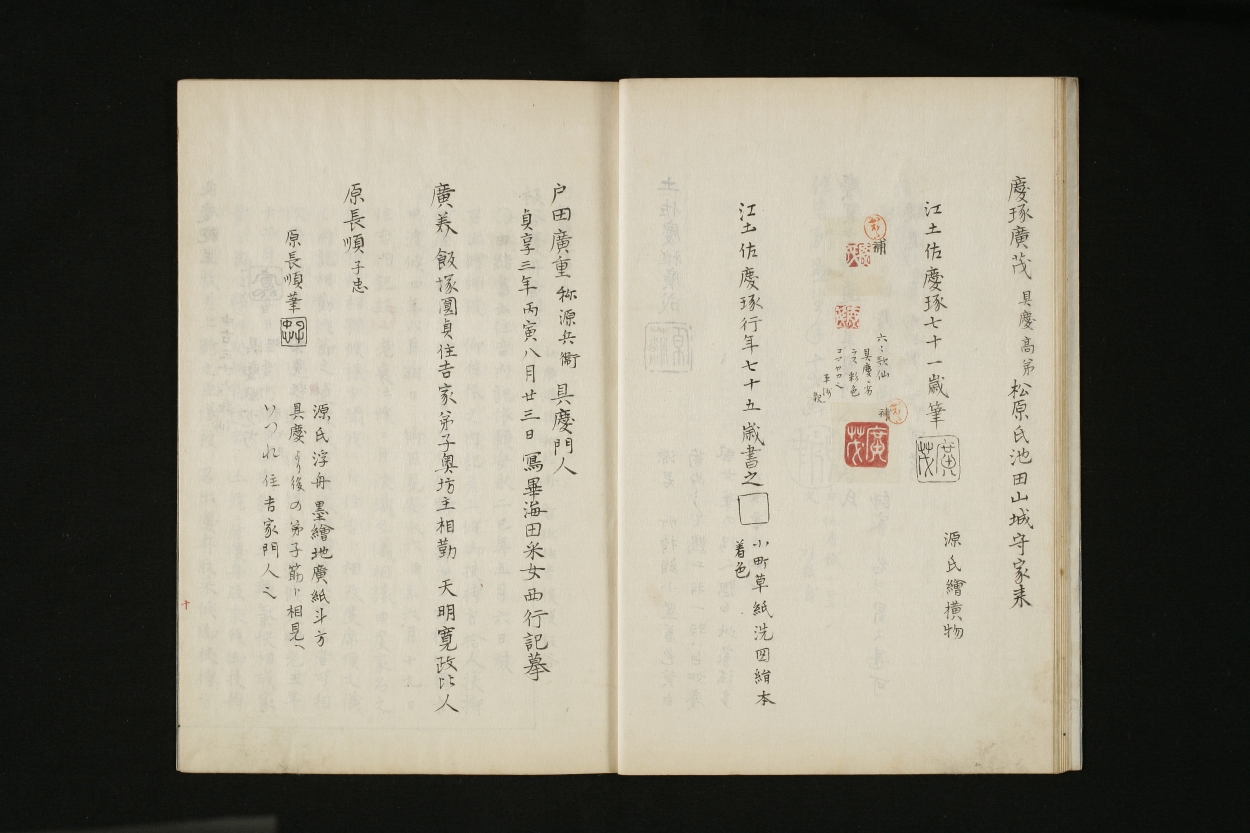 慶琢廣茂 具慶高弟松原氏池田山城守家来
江土佐慶琢七十一歳筆 廣茂
源氏繪横物
補
六々歌仙
具慶ヽ
彩色
補
廣茂
江土佐慶琢行年七十五歳書之
小町草紙洗図絹本
着色
戸田廣重 称源兵衛 具慶門人
貞享三年丙寅八月廿三日寫畢海田采女西行記摹
廣美 飯塚圓貞住吉家弟子奥坊主相勤 天明寛政比人
原長順 子忠
原長順筆
源氏浮舟 墨繪地廣紙斗方
具慶より後の弟子筋ト相見ヘ
いつれ住吉家門人也
十